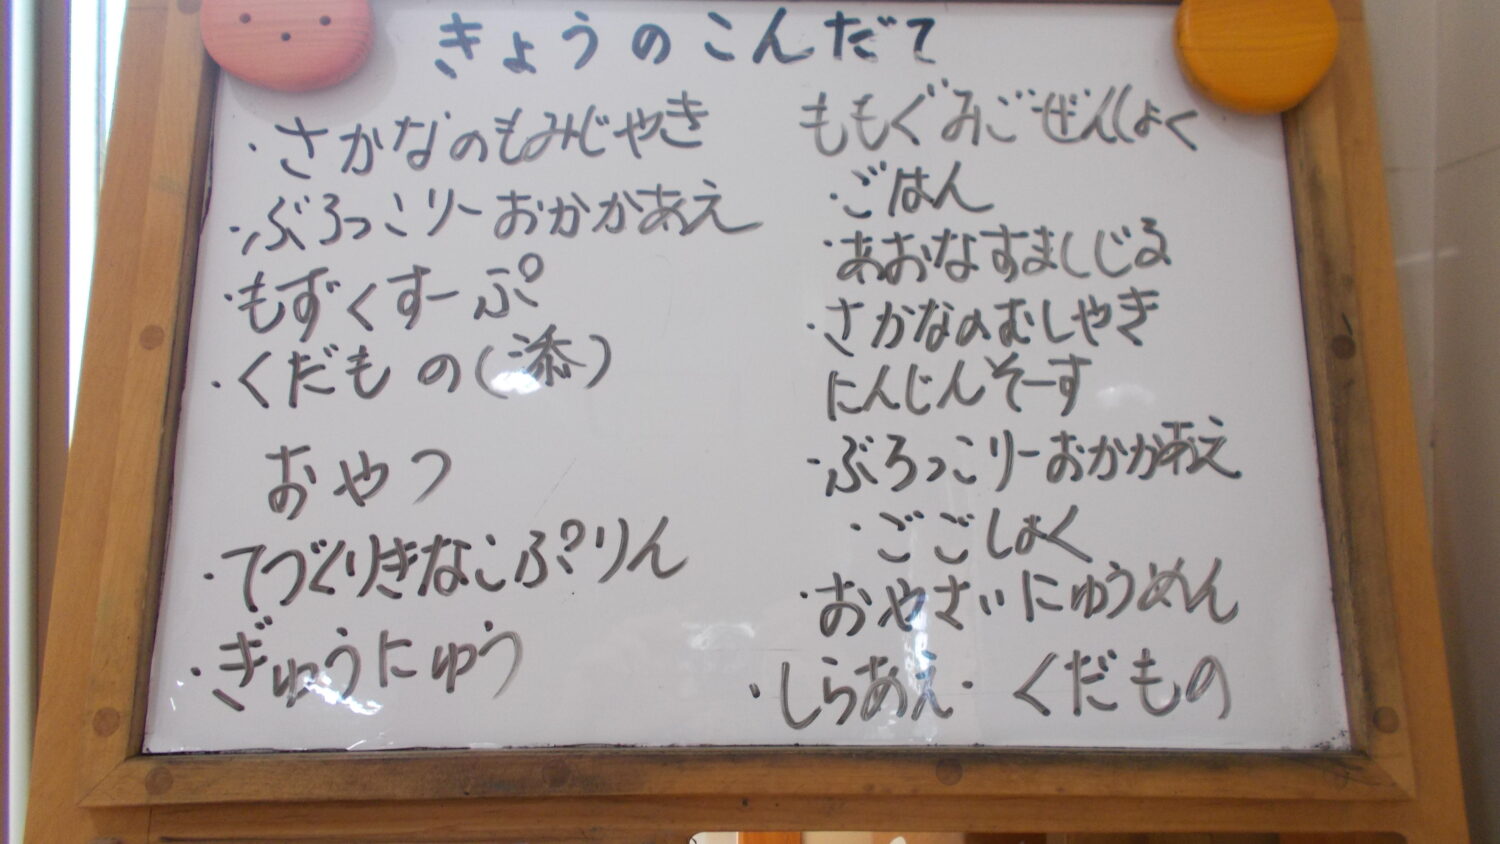 きょうのこんだて
・さかなのもみじやき
・ぶろっこりーおかかあえ
・もずくすーぷ
・くだもの(添)
おやつ
・てづくりきなこぷりん
・ぎゅうにゅう
ももぐみごぜんしょく
・ごはん
・あおなすましじる
・さかなのむしやき
にんじんそーす
・ぶろっこりーおかかあえ
・ごごしょく
・おやさいにゅうめん
・しらあえ・くだもの